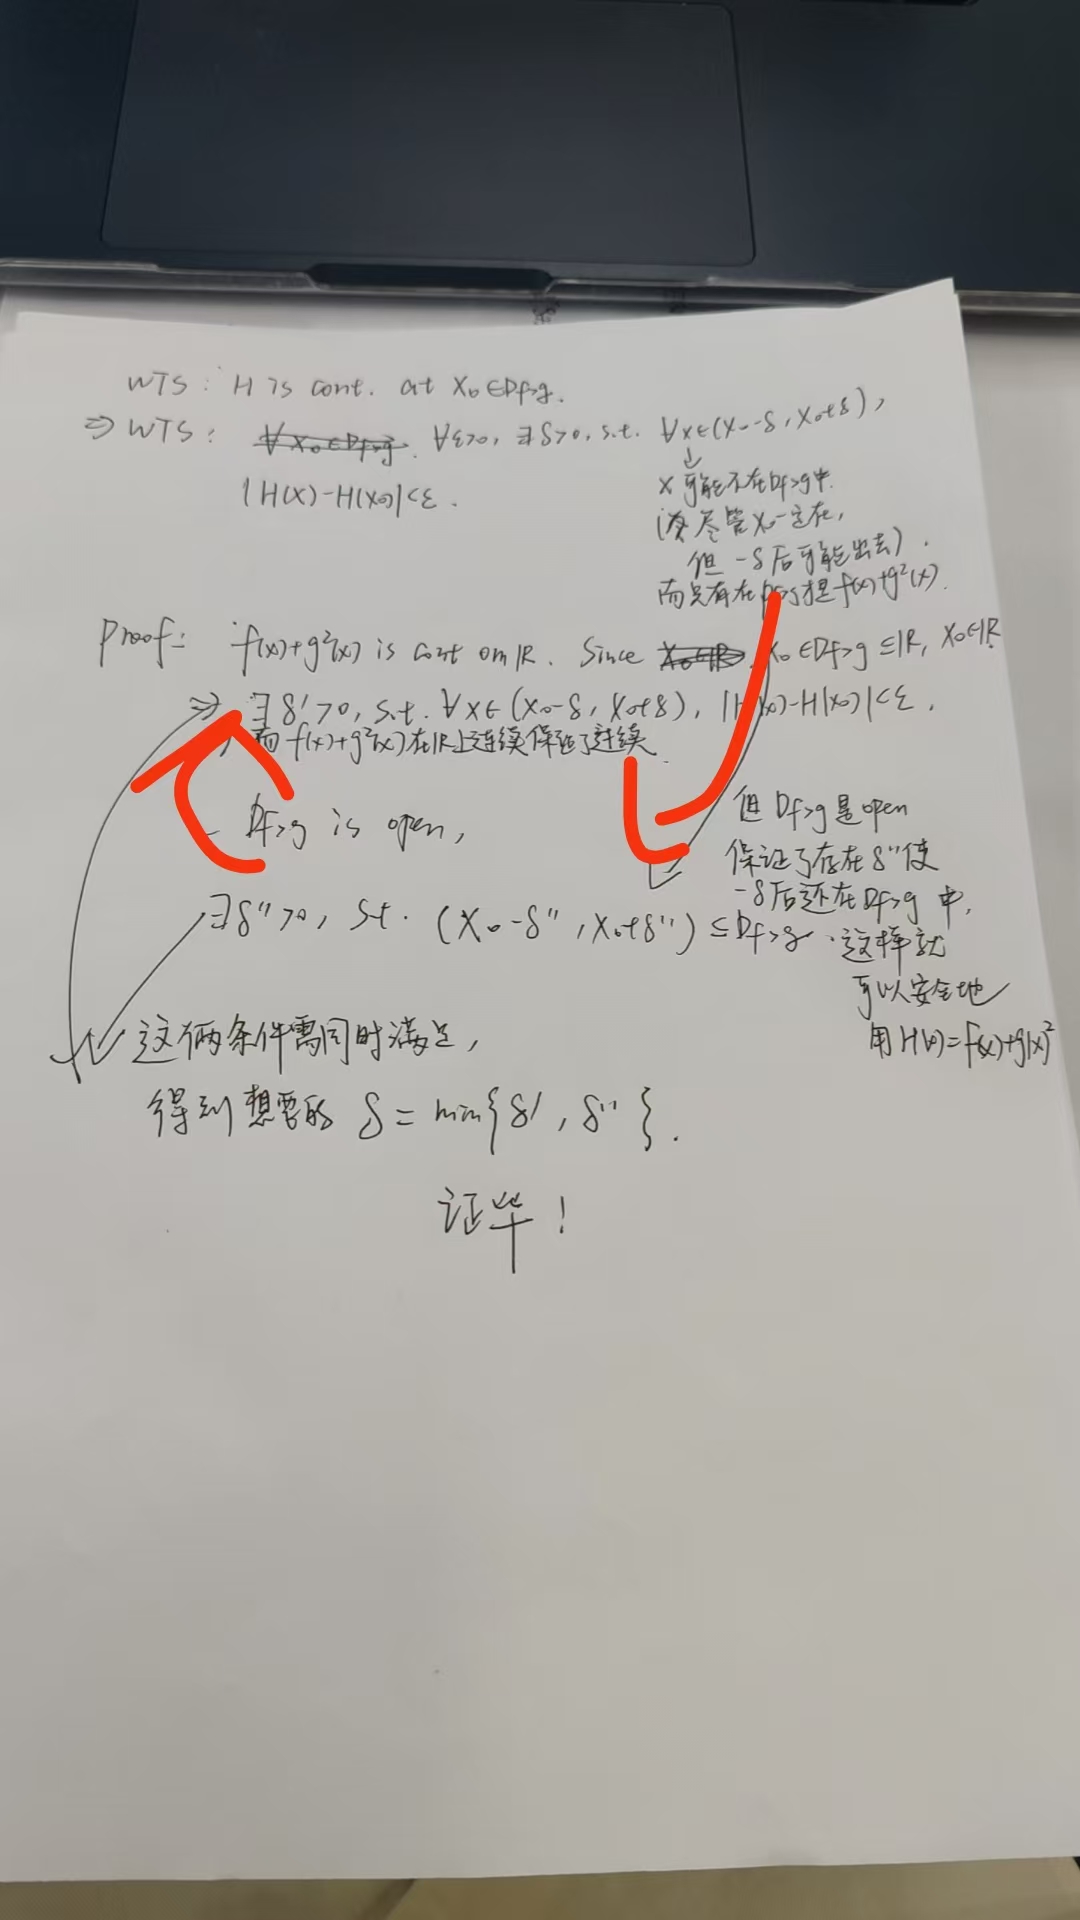 WTS: H is cont. at x₀∈Df>g.
⇒ WTS: ∀x₀∈Df>g. ∀ε>0, ∃δ>0, s.t. ∀x∈(x₀-δ, x₀+δ),
|H(x)-H(x₀)|<ε.
↓
x可能不在Df>g中.
(尽管x₀一定在,
但 -δ后可能出去).
而只有在Df>g才是f(x)+g²(x).
Proof: f(x)+g²(x) is cont on ℝ. Since x₀∈ℝ, x₀∈Df>g⊆ℝ, x₀∈ℝ.
⇒ ∃δ'>0, s.t. ∀x∈(x₀-δ, x₀+δ), |H(x)-H(x₀)|<ε.
而f(x)+g²(x)在ℝ上连续保证了连续.
Df>g is open,
但Df>g是open
保证了存在δ''使
-δ后还在Df>g中,
∃δ''>0, s.t. (x₀-δ'', x₀+δ'')⊆Df>g.
这样就
可以安全地
用H(x)=f(x)+g(x)²
这俩条件需同时满足,
得到想要的 δ=min{δ', δ''}.
证毕!